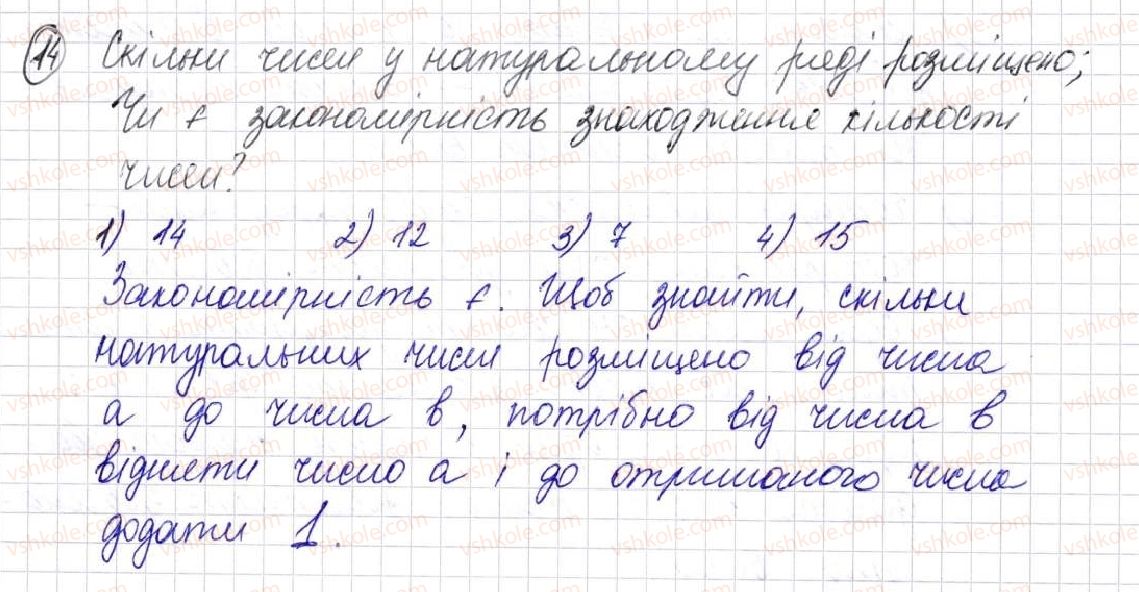 14 Скільки чисел у натуральному ряді розміщено;
Чи є закономірність знаходження кількості
чисел?
1) 14 2) 12 3) 7 4) 15
Закономірність є. Щоб знайти, скільки
натуральних чисел розміщено від числа
а до числа в, потрібно від числа в
відняти число а і до отриманого числа
додати 1.